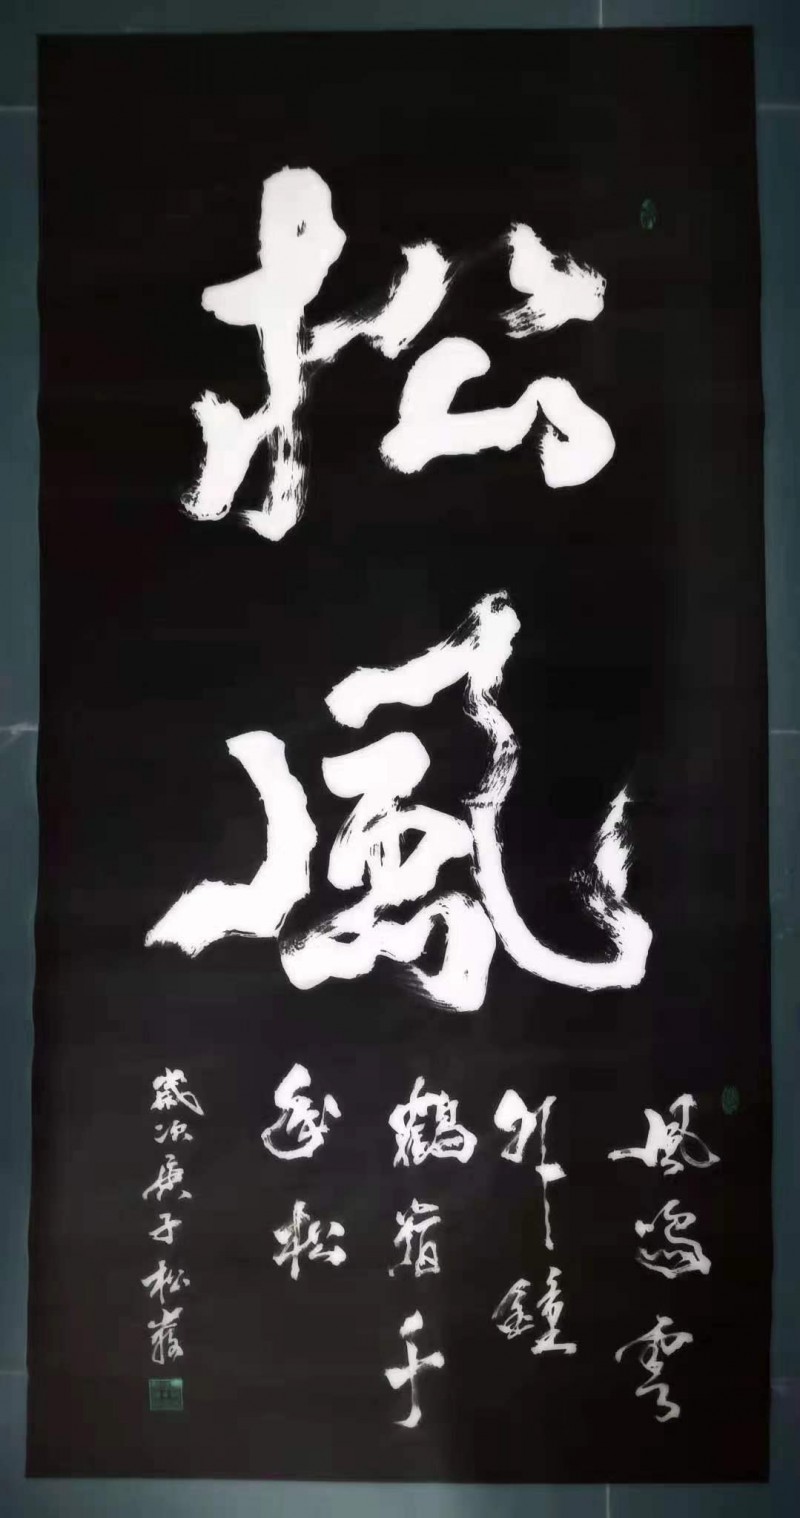 松風
風鳴雲
外鐘
鶴宿千
年松
歲次庚子松巖